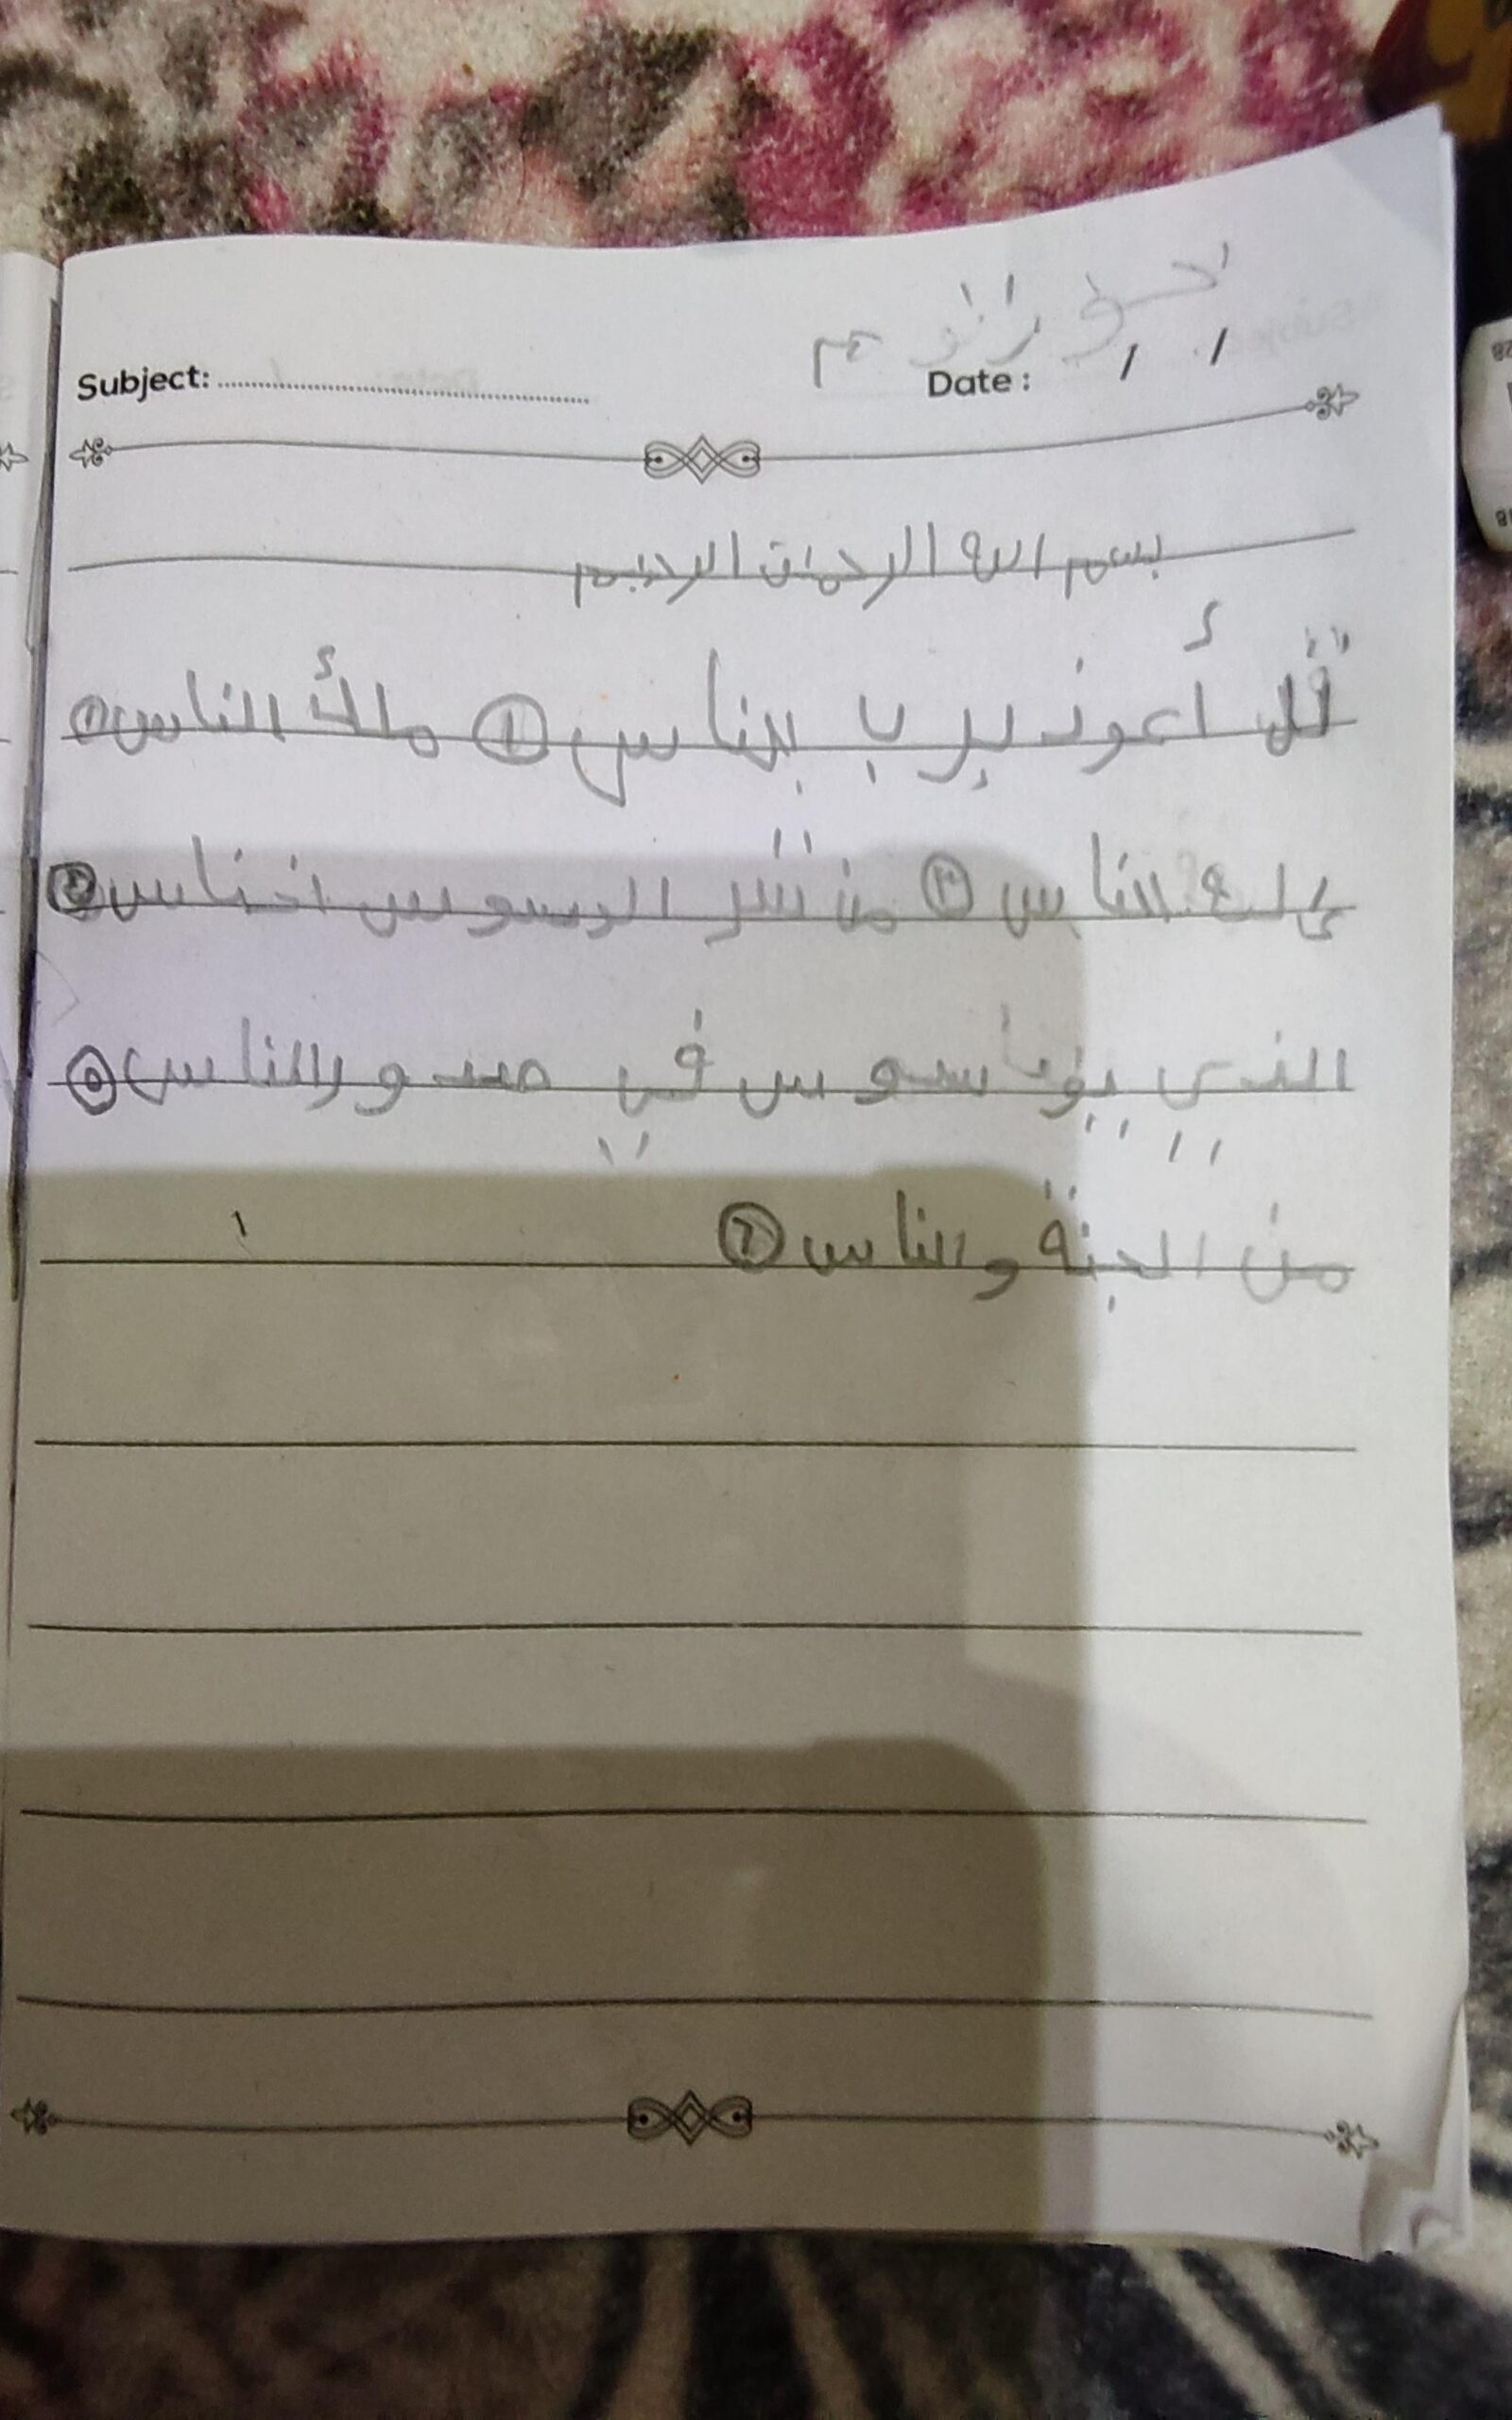 Subject: Date : / /
بسم الله الرحمن الرحيم
قل أعوذ برب الناس ١ ملك الناس ٢
إله الناس ٣ من شر الوسوس اخناس ٤
الذي يوسوس في صدورالناس ٥
من الجنة والناس ٦